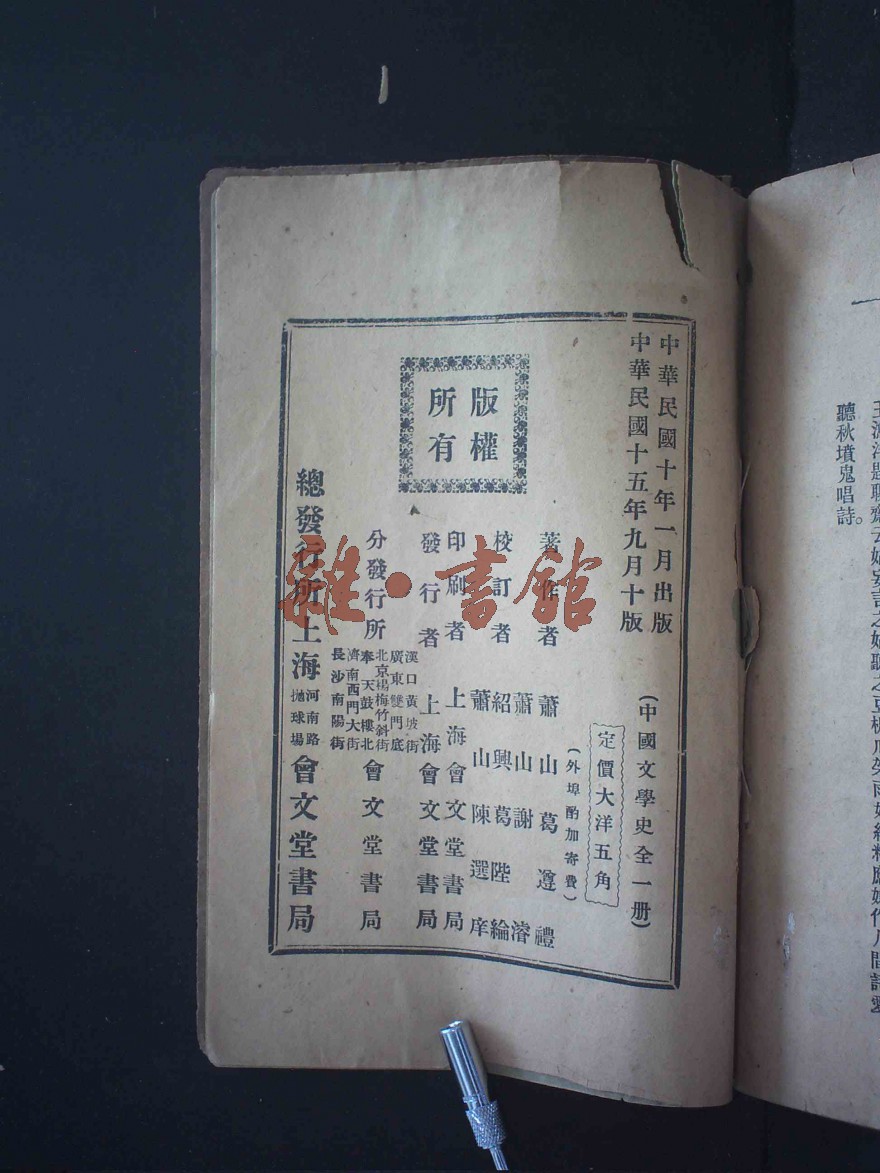 中華民國十年一月出版
中華民國十五年九月十版
(中國文學史全一册)
定價大洋五角
(外埠酌加寄費)
著作者 蕭山葛遵禮
校訂者 蕭山謝濬
紹興葛陛綸
蕭山陳選庠
印刷者 上海會文堂書局
發行者 上海會文堂書局
分發行所
漢口黃坡街
廣東雙門底
北京楊梅竹斜街
奉天鼓樓北
濟南西門大街
長沙南陽街
會文堂書局
總發行所上海
河南路
拋球場
會文堂書局
版權
所有
雜·書館
聽秋墳鬼唱詩。